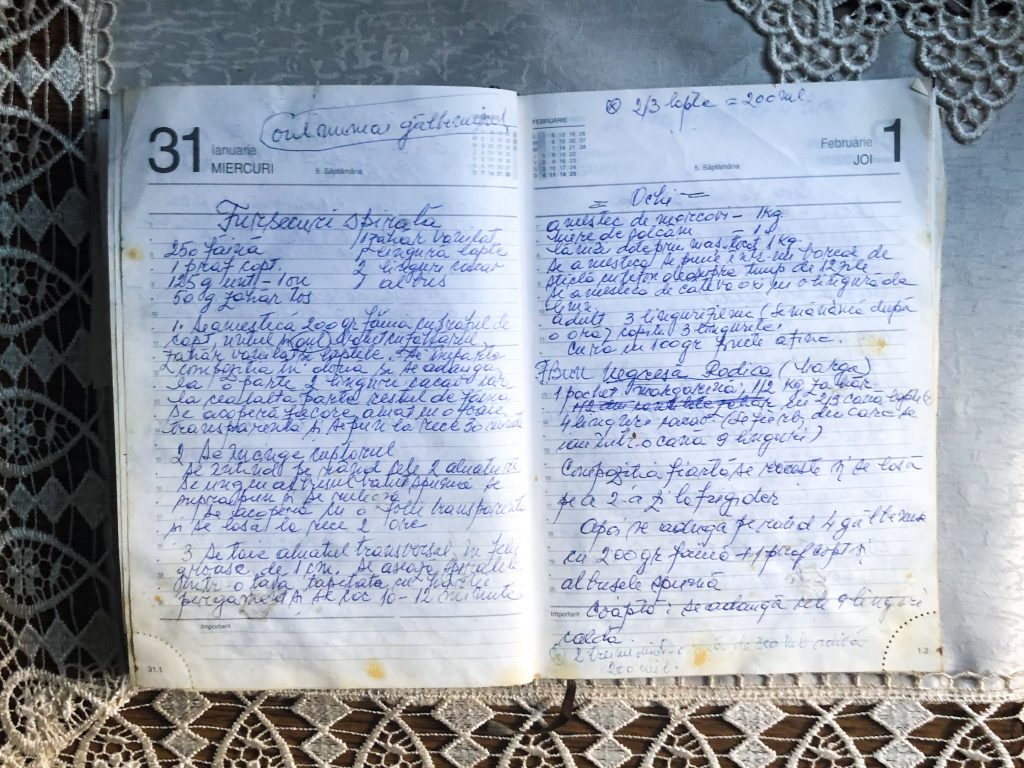 31
Ianuarie
MIERCURI
5. Săptămâna
oul numai gălbenușul
Fursecuri spirală
250 făină
1 praf copt.
125 g unt - 1 ou
50 g zahăr tos
1 zahăr vanilat
1 lingură lapte
2 linguri cacao
1 albuș
1. Se amestică 200 gr făină cu praful de
copt, untul, oul
zahăr vanilat și laptele. Se împarte
compoziția în două și se adaugă
la o parte 2 linguri cacao iar
la cealaltă parte restul de făină
Se acoperă fiecare aluat cu o folie
transparentă și se pun la rece 30 minute
2 Se încinge cuptorul
Se întinde pe rând cele 2 aluaturi
Se ung cu albușul bătut spumă se
suprapun și se rulează
Se acoperă cu o folie transparentă
și se lasă la rece 2 ore
3 Se taie aluatul transversal în felii
groase de 1 cm. Se așează spiralele
într-o tavă tapetată cu hârtie
pergament și se coc 10-12 minute
Important
31.1
⊗ 2/3 lapte = 200 ml.
FEBRUARIE
Februarie
JOI
1
5. Săptămâna
= Ochi =
amestec de morcovi - 1 kg
mere de
lămâi date prin mașină 1 kg
Se amestică se pune într-un borcan de
sticlă timp de 12 zile
Se amestecă de câteva ori cu o lingură de
lemn
adult 3 linguri/zi (se mănâncă după
o oră) copite 3 lingurițe.
cura cu 100 gr fructe afine.
F Bun Negresa Rodica (Marga)
1 pachet margarină, 1/2 kg zahăr
cu 2/3 cană lapte ⊗
4 linguri cacao (se fierb, din care se
iau într-o cană 9 linguri)
Compoziția fiartă se răcește și se lasă
pe a 2-a zi la frigider
Apoi se adaugă pe rând 4 gălbenușuri
cu 200 gr făină + 1 praf copt și
albușele spumă
Coaptă: se adaugă cele 9 linguri
Important
caldă.
2 treimi dintr-o cană de 300 ml adică
200 ml.
1.2